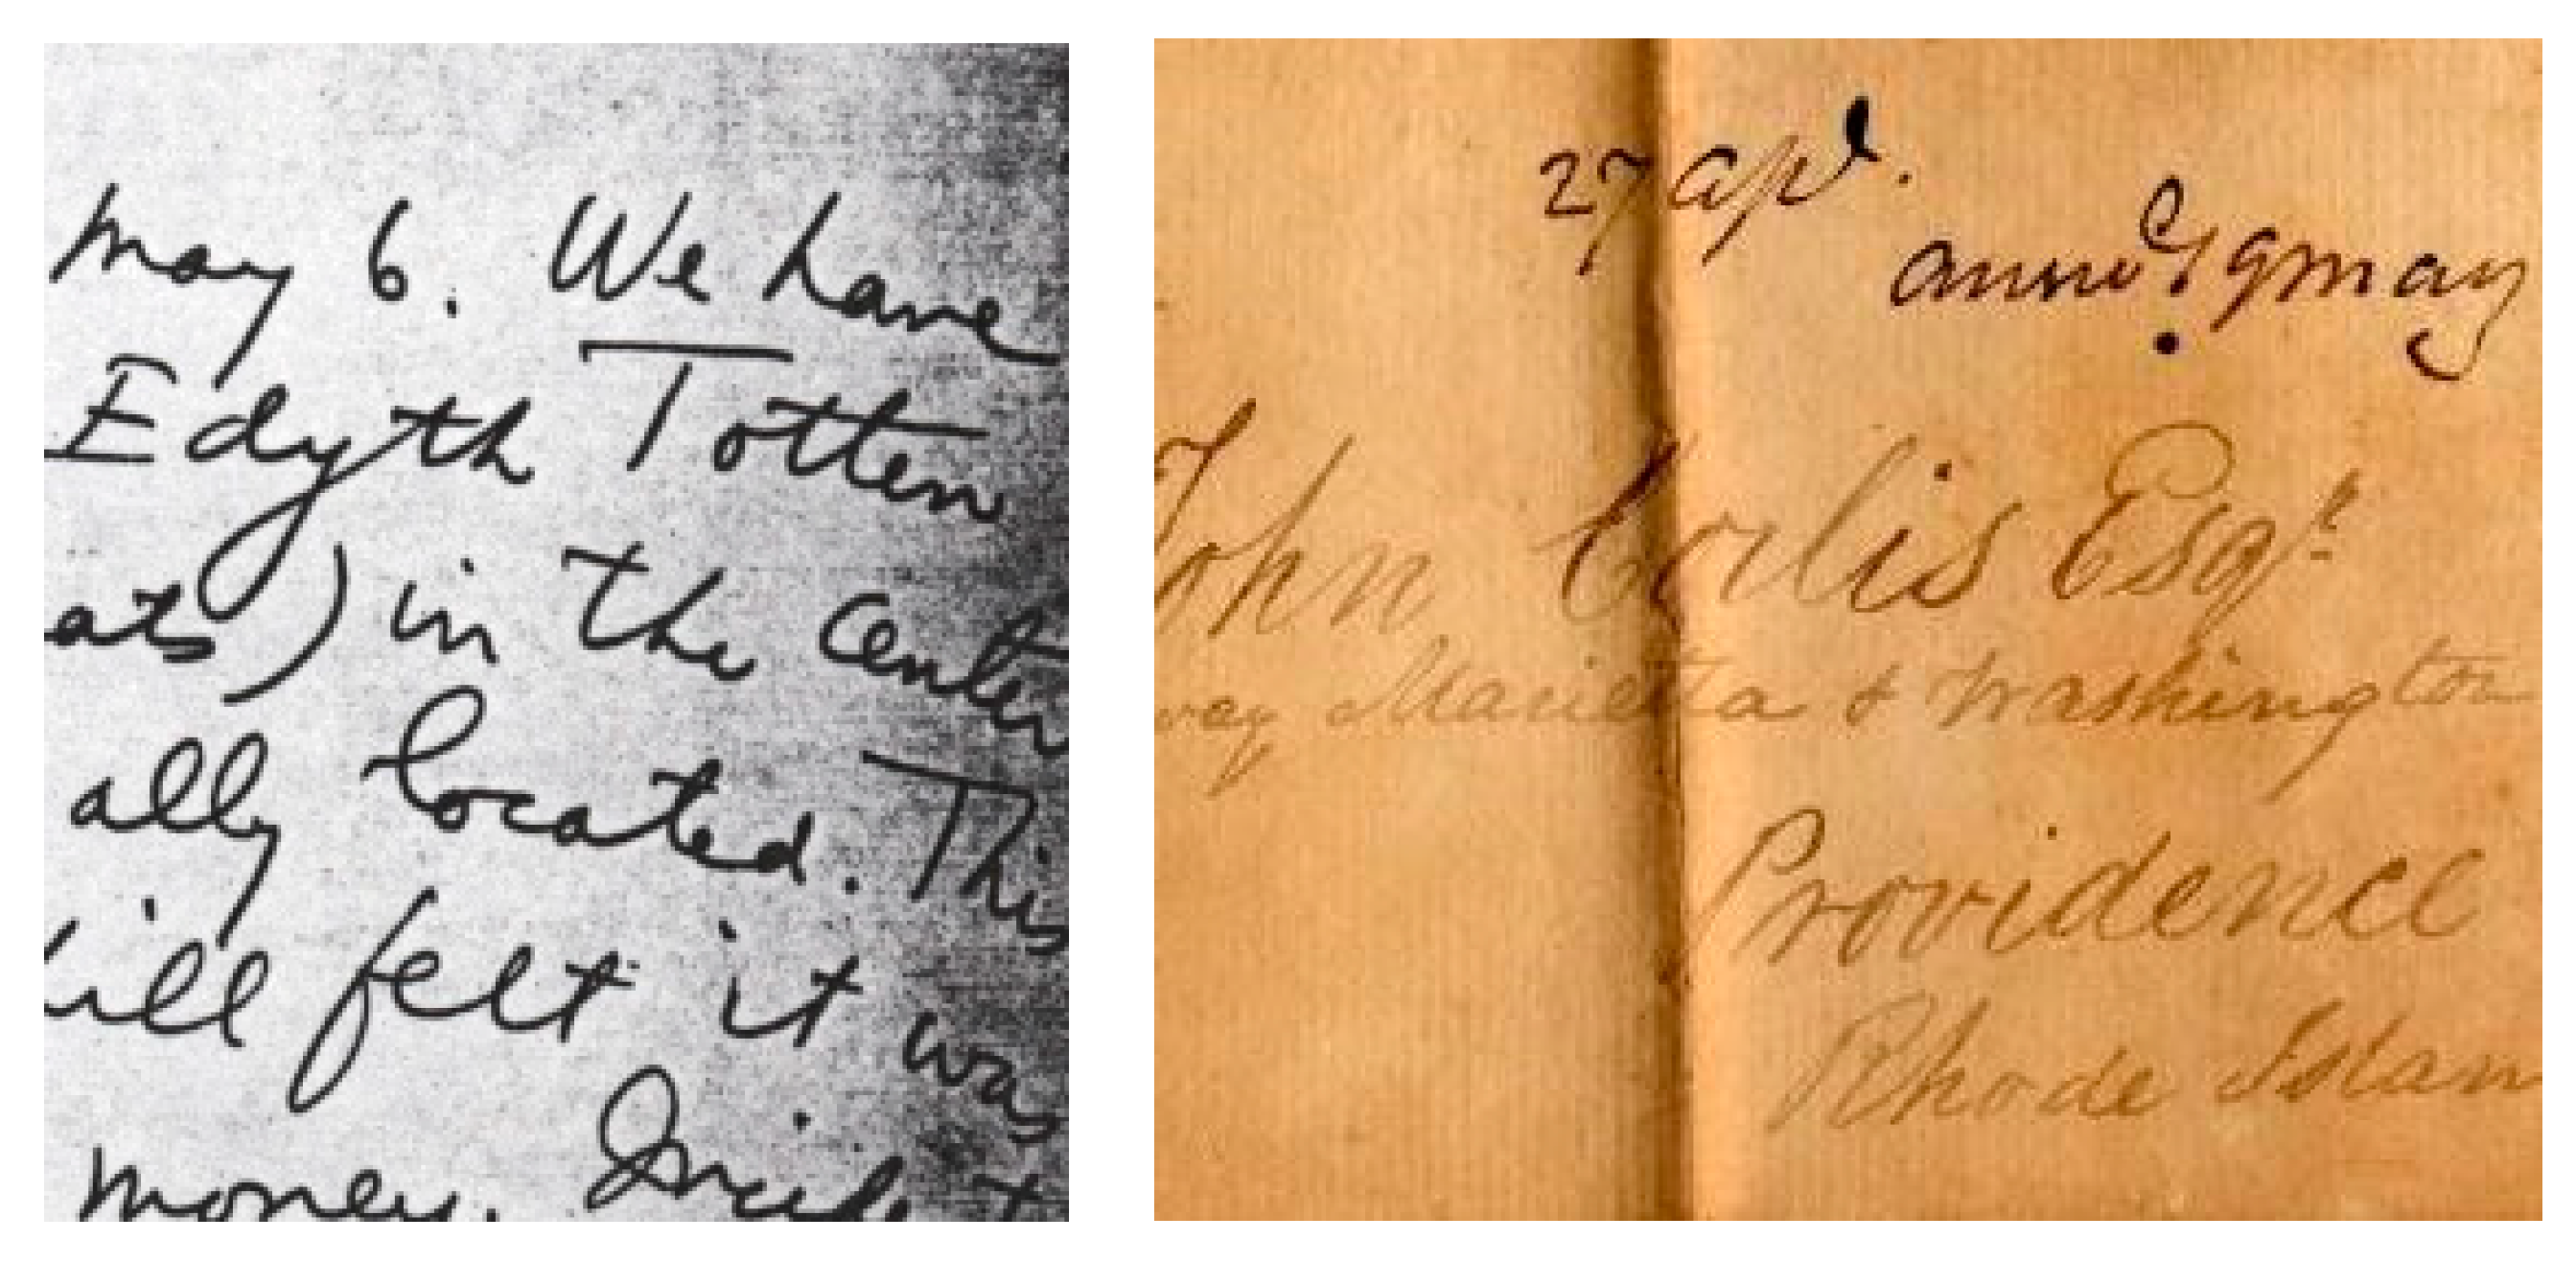 May 6. We have
Edyth Totten
ats) in the center
ally located. This
ill felt it was
money.
27 Apl.
John Corlis Esqr.
Marietta & Washington
Providence
Rhode Islan